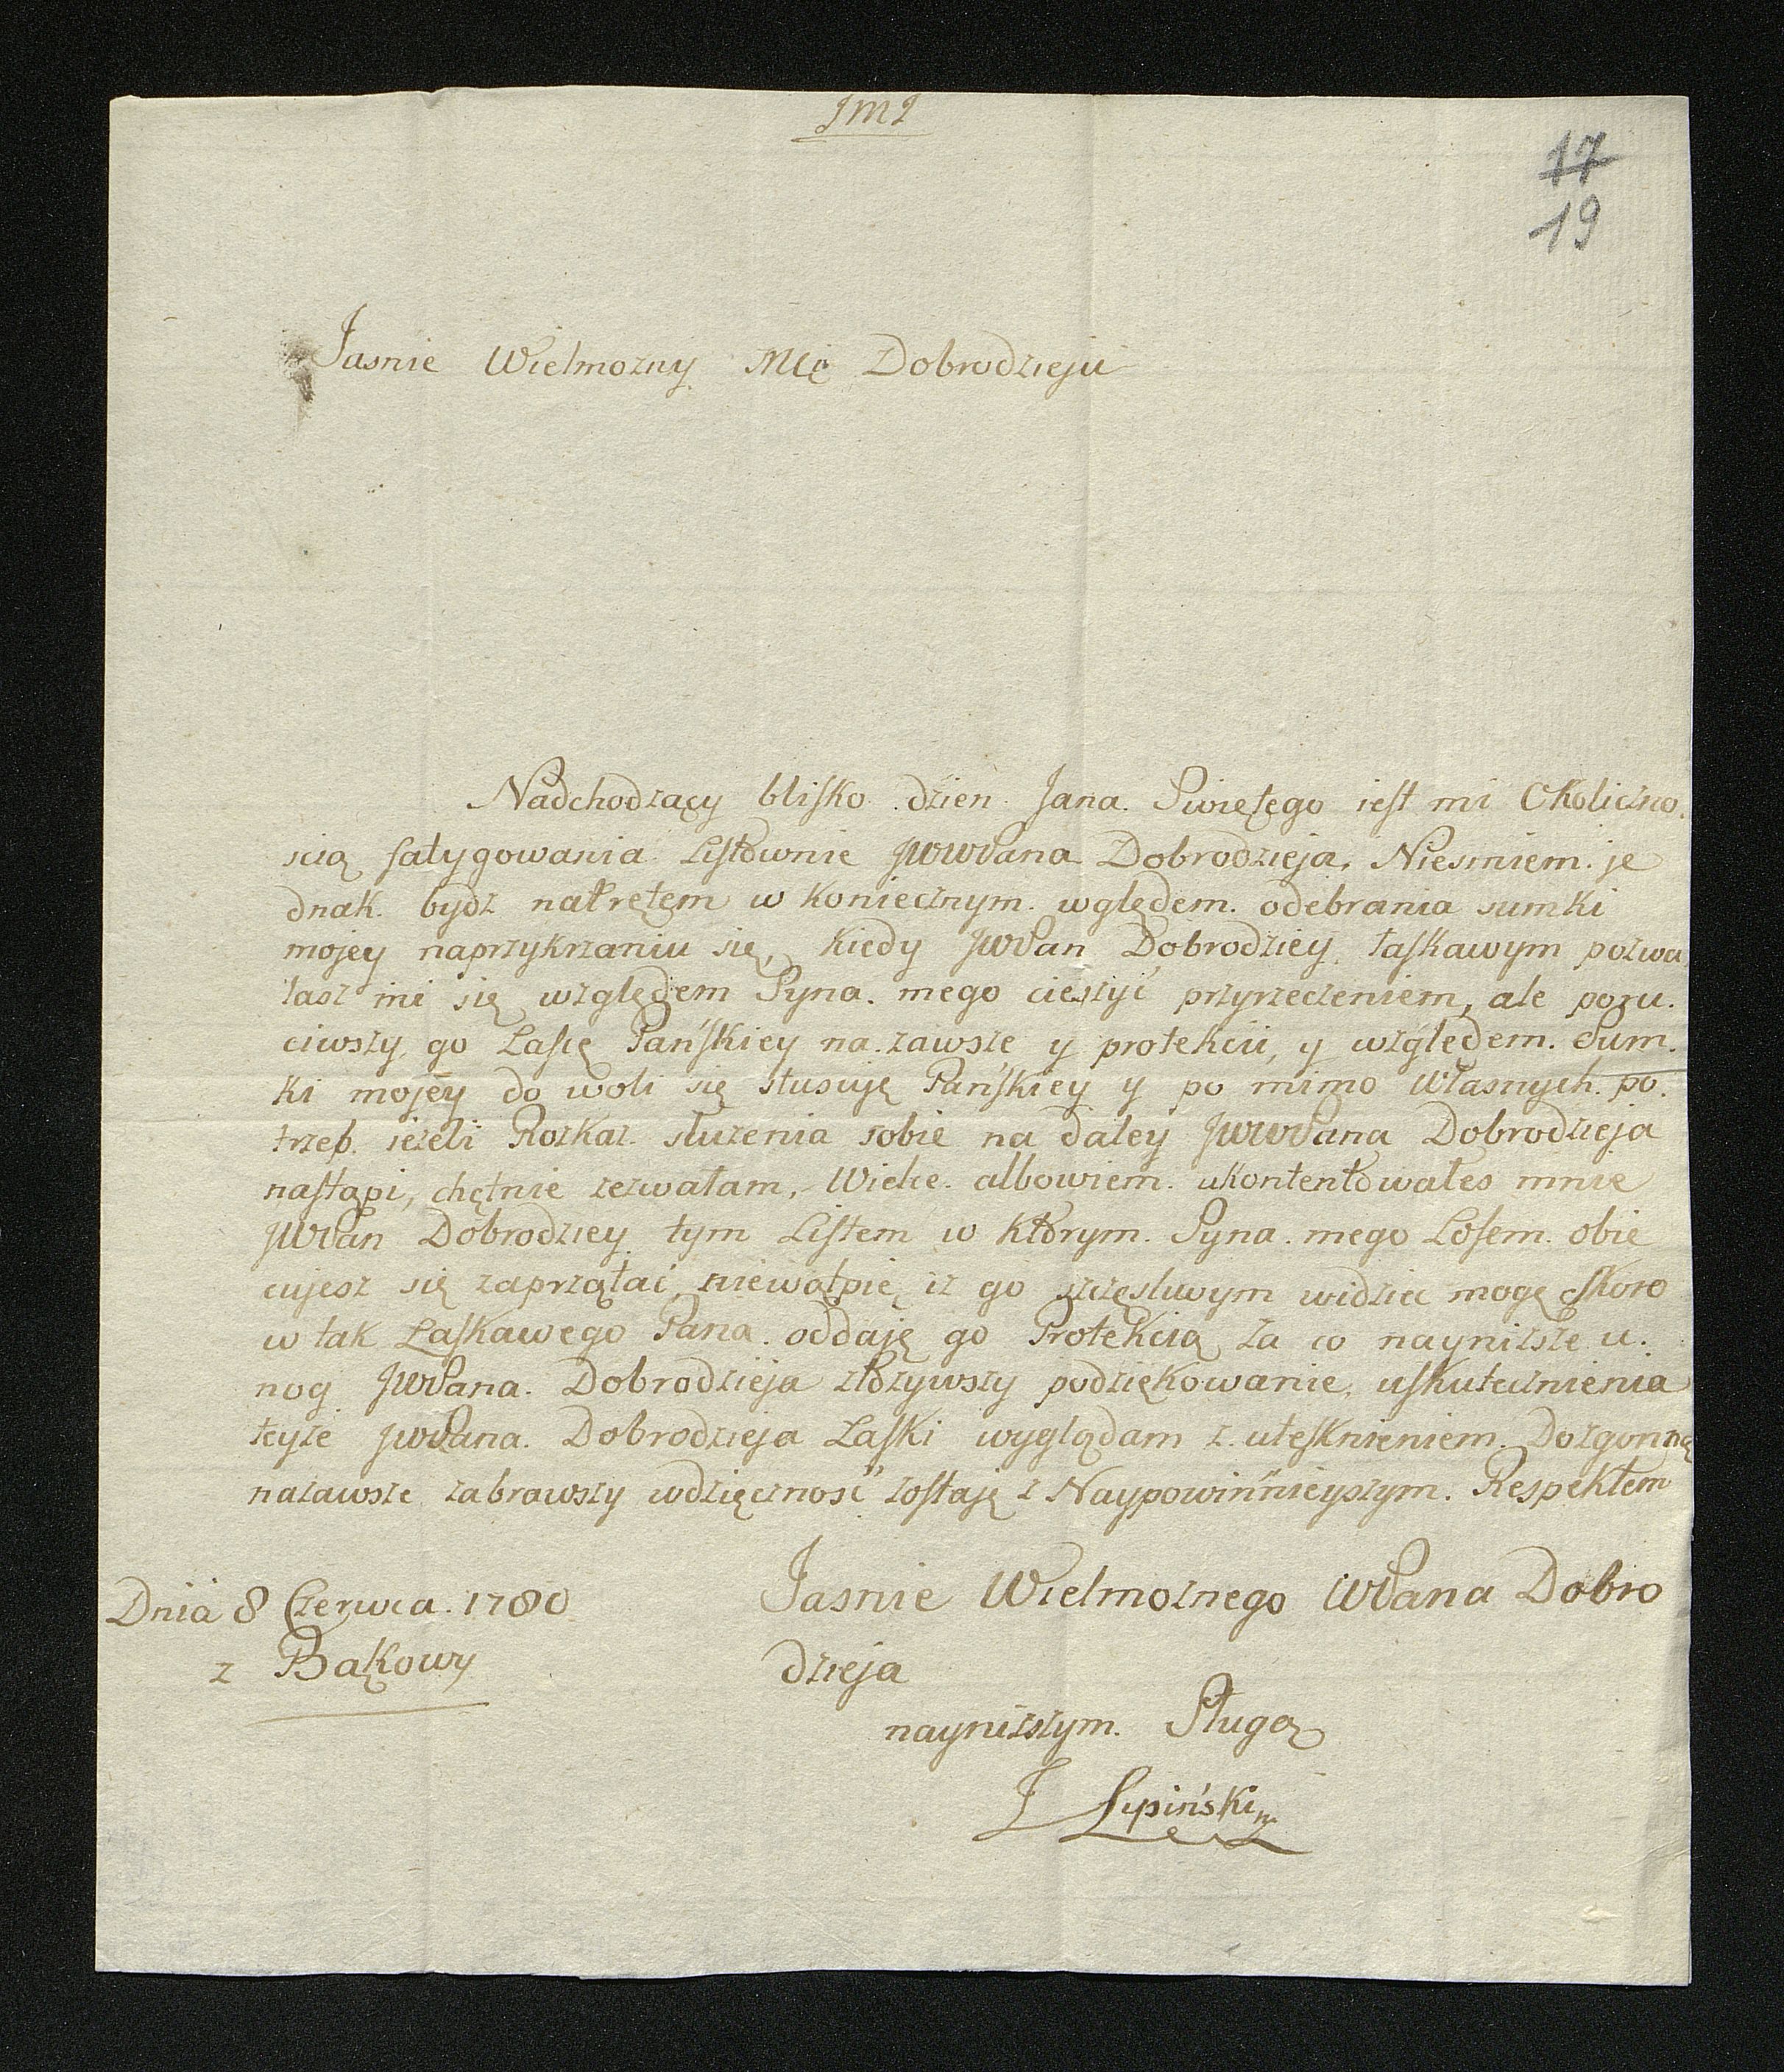 JMJ
17
19
Jasnie Wielmozny Mćę Dobrodzieju
Nadchodzący blisko dzien Jana Swiętego iest mi Okoliczno.
scią fatygowania Listownie JWWPana Dobrodzieja. Niesmiem je
dnak bydz natrętem w koniecznym wględem odebrania sumki
mojey naprzykrzaniu się, kiedy JWPan Dobrodziey łaskawym pozwa
lasz mi się względem Syna mego cieszyć przyrzeczeniem, ale poru.
ciwszy go Łascę Pańskiey na zawsze y protekcii, y względem Sum.
ki mojey do woli się stusuję Pańskiey y po mimo własnych po.
trzeb iezeli Rozkaz słuzenia sobie na daley JWWPana Dobrodzieja
nastąpi, chętnie zezwalam, Wielce albowiem ukontentowałes mnie
JWPan Dobrodziey tym Listem w ktorym Syna mego Losem obie
cujesz się zaprzątać, niewątpię iz go szczęsliwym widziec mogę skoro
w tak Łaskawego Pana oddaję go Protekcią za co naynizsze u.
nog JWPana Dobrodzieja złozywszy podziękowanie, uskutecznienia
teyze JWPana Dobrodzieja Łaski wyglądam z utesknieniem. Dozgonną
nazawsze zabrawszy wdzięczność zostaję z Naypowinnieyszym Respektem
Jasnie Wielmoznego WPana Dobro
dzieja
naynizszym Sługą
J Lypiński
Dnia 8 Czerwca 1780
z Bąkowy